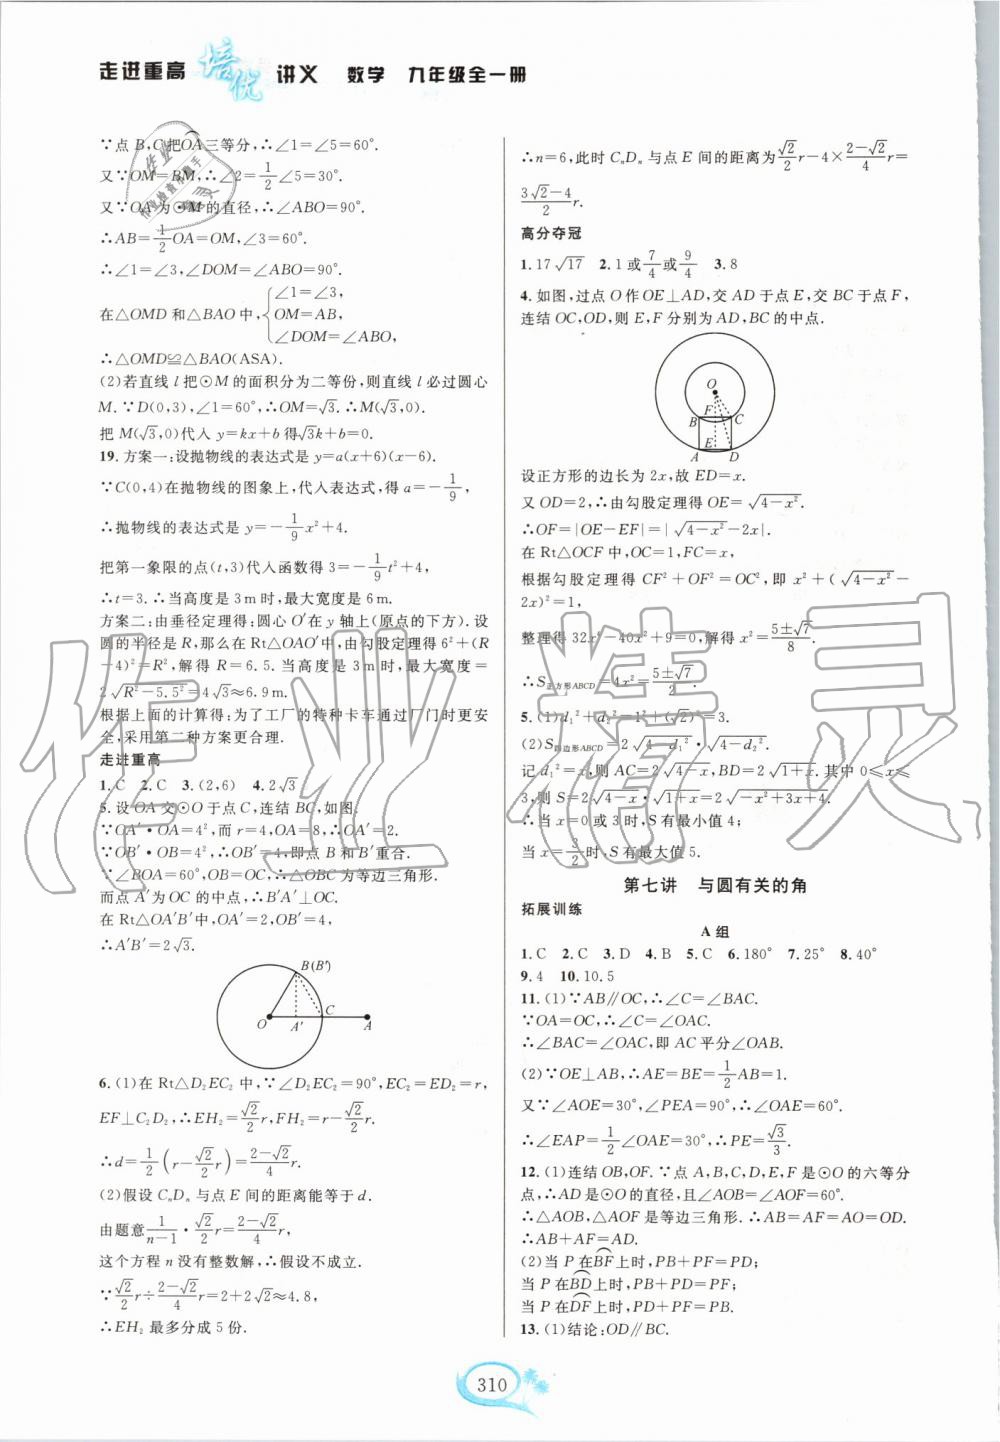 走进重高 培优 讲义 数学 九年级全一册
∵点 B,C把OA三等分,∴∠1=∠5=60°.
又∵OM=BM,∴∠2=1/2∠5=30°.
又∵OA为⊙M的直径,∴∠ABO=90°.
∴AB=1/2OA=OM,∠3=60°.
∴∠1=∠3,∠DOM=∠ABO=90°.
在△OMD和△BAO中,{∠1=∠3,
OM=AB,
∠DOM=∠ABO,
∴△OMD≌△BAO(ASA).
(2)若直线l把⊙M的面积分为二等份,则直线l必过圆心
M.∵D(0,3),∠1=60°,∴OM=√3.∴M(√3,0).
把M(√3,0)代入y=kx+b得√3k+b=0.
19.方案一:设抛物线的表达式是y=a(x+6)(x-6).
∵C(0,4)在抛物线的图象上,代入表达式,得a=-1/9,
∴抛物线的表达式是y=-1/9x²+4.
把第一象限的点(t,3)代入函数得3=-1/9t²+4,
∴t=3.∴当高度是3m时,最大宽度是6m.
方案二:由垂径定理得:圆心O′在y轴上(原点的下方).设
圆的半径是R,那么在Rt△OAO′中,由勾股定理得6²+(R
-4)²=R²,解得R=6.5.当高度是3m时,最大宽度=
2√(R²-5.5²)=4√3≈6.9m.
根据上面的计算得:为了工厂的特种卡车通过厂门时更安
全,采用第二种方案更合理.
走进重高
1.C 2.C 3.(2,6) 4.2√3
5.设OA交⊙O于点C,连结BC,如图.
∵OA′·OA=4²,而r=4,OA=8,∴OA′=2.
∵OB′·OB=4²,∴OB′=4,即点B和B′重合.
∵∠BOA=60°,OB=OC,∴△OBC为等边三角形.
而点A′为OC的中点,∴B′A′⊥OC.
在Rt△OA′B′中,OA′=2,OB′=4,
∴A′B′=2√3.
B(B′)
O A′ C A
6.(1)在Rt△D₂EC₂中,∵∠D₂EC₂=90°,EC₂=ED₂=r,
EF⊥C₂D₂,∴EH₂=√2/2r,FH₂=r-√2/2r,
∴d=1/2(r-√2/2r)=(2-√2)/4r.
(2)假设CₙDₙ与点E间的距离能等于d.
由题意1/(n-1)·√2/2r=(2-√2)/4r,
这个方程n没有整数解,∴假设不成立.
∵√2/2r÷(2-√2)/4r=2+2√2≈4.8,
∴EH₂最多分成5份.
∴n=6,此时CₙDₙ与点E间的距离为√2/2r-4×(2-√2)/4r=
(3√2-4)/2r.
高分夺冠
1.17√17 2.1或7/4或9/4 3.8
4.如图,过点O作OE⊥AD,交AD于点E,交BC于点F,
连结OC,OD,则E,F分别为AD,BC的中点.
O
B F C
A E D
设正方形的边长为2x,故ED=x.
又OD=2,∴由勾股定理得OE=√(4-x²).
∴OF=|OE-EF|=|√(4-x²)-2x|.
在Rt△OCF中,OC=1,FC=x,
根据勾股定理得CF²+OF²=OC²,即x²+(√(4-x²)-
2x)²=1,
整理得32x⁴-40x²+9=0,解得x²=(5±√7)/8.
∴S正方形ABCD=4x²=(5±√7)/2.
5.(1)d₁²+d₂²=1²+(√2)²=3.
(2)S四边形ABCD=2√(4-d₁²)·√(4-d₂²).
记d₁²=x,则AC=2√(4-x),BD=2√(1+x).其中0≤x≤
3,则S=2√(4-x)·√(1+x)=2√(-x²+3x+4).
∴当x=0或3时,S有最小值4;
当x=3/2时,S有最大值5.
第七讲 与圆有关的角
拓展训练
A组
1.C 2.C 3.D 4.B 5.C 6.180° 7.25° 8.40°
9.4 10.10.5
11.(1)∵AB∥OC,∴∠C=∠BAC.
∵OA=OC,∴∠C=∠OAC.
∴∠BAC=∠OAC,即AC平分∠OAB.
(2)∵OE⊥AB,∴AE=BE=1/2AB=1.
又∵∠AOE=30°,∠PEA=90°,∴∠OAE=60°.
∴∠EAP=1/2∠OAE=30°,∴PE=√3/3.
12.(1)连结OB,OF.∵点A,B,C,D,E,F是⊙O的六等分
点,∴AD是⊙O的直径,且∠AOB=∠AOF=60°.
∴△AOB,△AOF是等边三角形.∴AB=AF=AO=OD.
∴AB+AF=AD.
(2)当P在BF上时,PB+PF=PD;
当P在BD上时,PB+PD=PF;
当P在DF上时,PD+PF=PB.
13.(1)结论:OD∥BC.
310
作业精灵